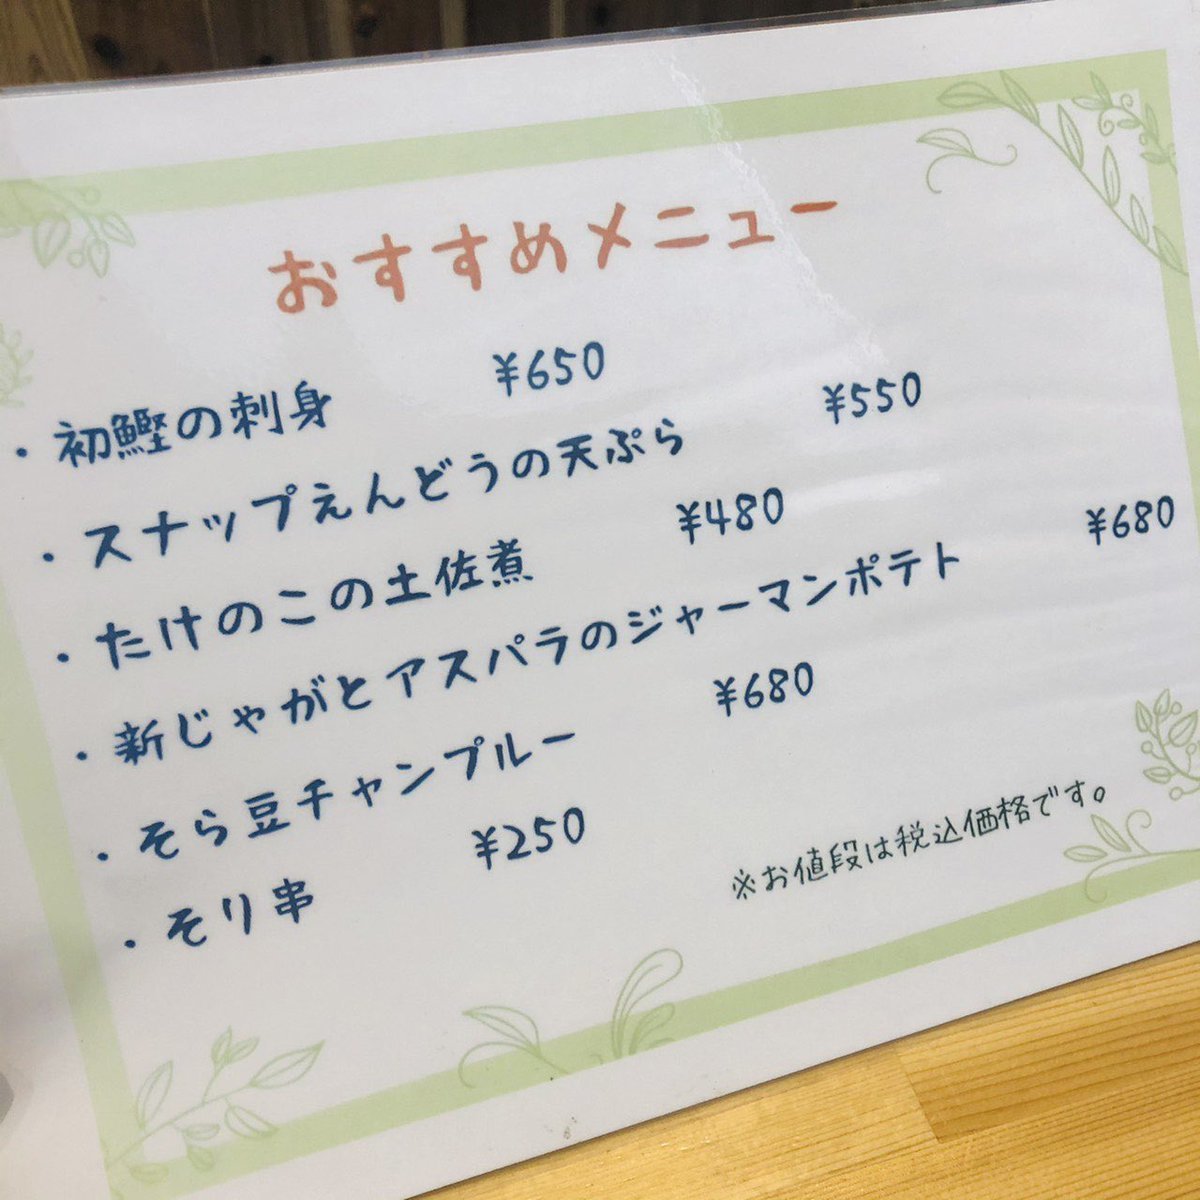 おすすめメニュー
・初鰹の刺身 ¥650
・スナップえんどうの天ぷら ¥550
・たけのこの土佐煮 ¥480
・新じゃがとアスパラのジャーマンポテト ¥680
・そら豆チャンプルー ¥680
・そり串 ¥250
※お値段は税込価格です。